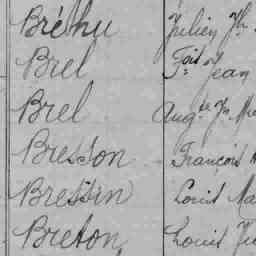 Bréhu Julien
Brel Jean
Brel Aug.te
Bresson François
Bressin Louis Ma
Breton, Louis